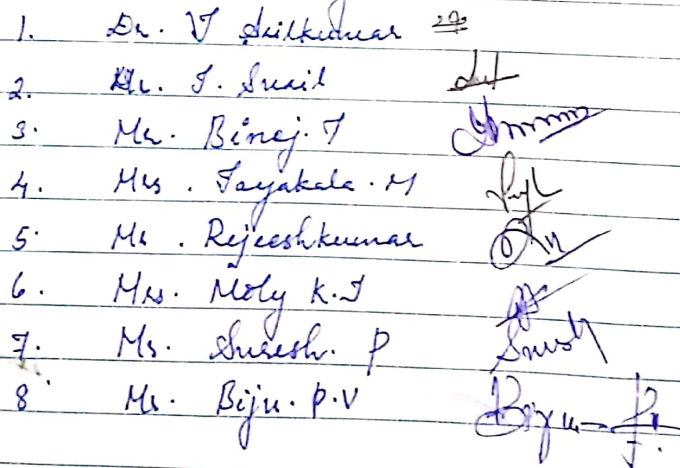 1. Dr. V Anilkumar
2. Mr. J. Sunil
3. Mr. Binoj. J
4. Mrs. Jayakala. M
5. Mr. Rejeeshkumar
6. Mrs. Moly K.J
7. Mr. Suresh. P
8. Mr. Biju. P.V